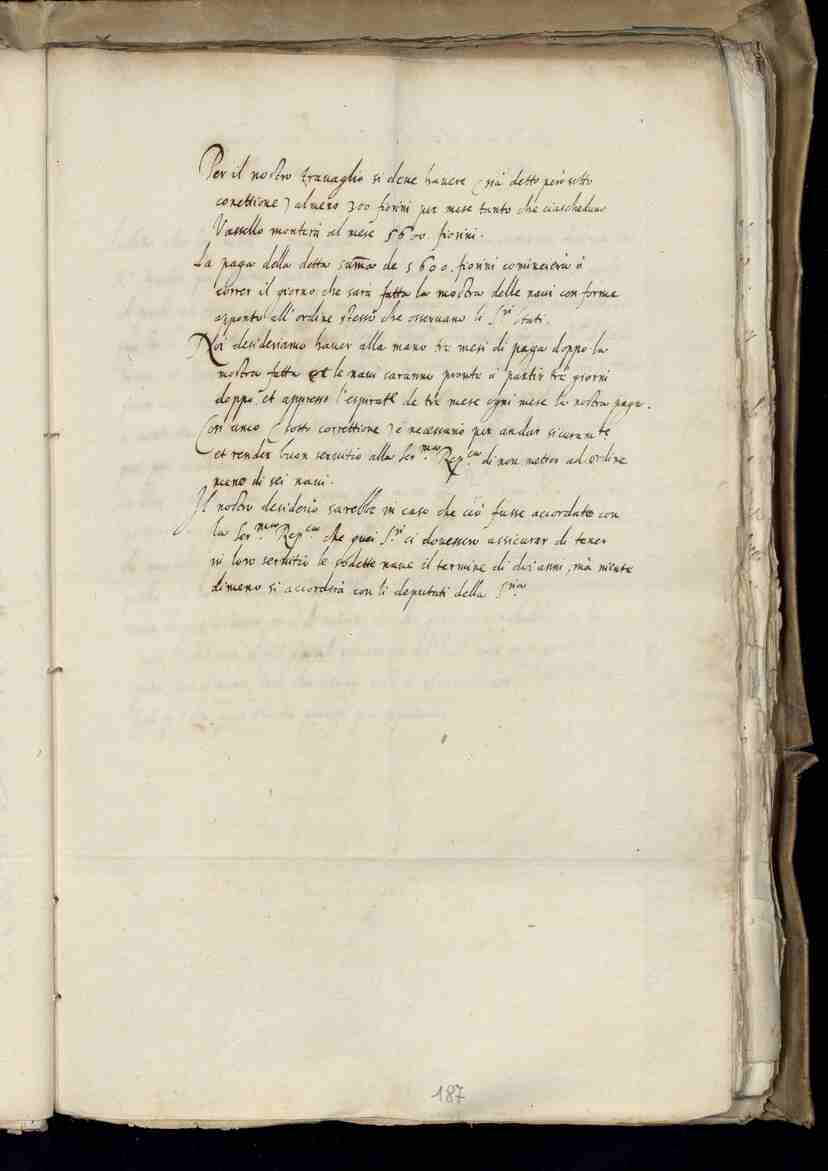 Per il nostro travaglio si deve havere ( sia detto però sotto
corettione ) almeno 300 fiorini per mese tanto che ciascheduno
Vassello monterà al mese 5600. fiorini.
La paga della detta summa de 5600. fiorini comincierà à
correr il giorno che sarà fatta la mostra delle navi conforme
apponto all'ordine stesso che osservano li S.ri Stati.
Noi desideriamo haver alla mano tre mesi di paga doppo la
mostra fatta et le navi saranno pronte à partir tre giorni
doppo, et appresso l'espirate de tre mese ogni mese la nostra paga.
Cosi anco ( sotto correttione ) è necessario per andar sicuramte
et render buon servitio alla Ser.ma Rep.ca di non metter ad ordine
meno di sei navi.
Il nostro desiderio sarebbe in caso che ciò fusse accordato con
la Ser.ma Rep.ca che quei S.ri ci dovessero assicurar di tener
in loro servitio le sodette nave il termine di doi anni, mà niente
dimeno si accorderà con li deputati della S.ria
187